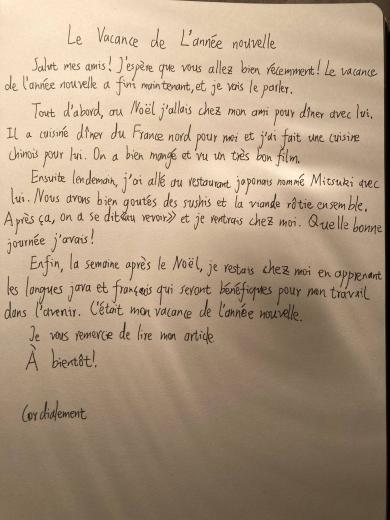 Le Vacance de L'année nouvelle
Salut mes amis! J'espère que vous allez bien récemment! Le vacance
de l'année nouvelle a fini maintenant, et je vais le parler.
Tout d'abord, au Noël j'allais chez mon ami pour dîner avec lui.
Il a cuisiné dîner du France nord pour moi et j'ai fait une cuisine
chinois pour lui. On a bien mangé et vu un très bon film.
Ensuite lendemain, j'ai allé au restaurant japonais nommé Mitsuki avec
lui. Nous avons bien goutés des sushis et la viande rôtie ensemble.
Après ça, on a se dit «au revoir» et je rentrais chez moi. Quelle bonne
journée j'avais!
Enfin, la semaine après le Noël, je restais chez moi en apprenant
les langues java et français qui seront bénéfiques pour mon travail
dans l'avenir. C'était mon vacance de l'année nouvelle.
Je vous remercie de lire mon article
À bientôt!
Cordialement